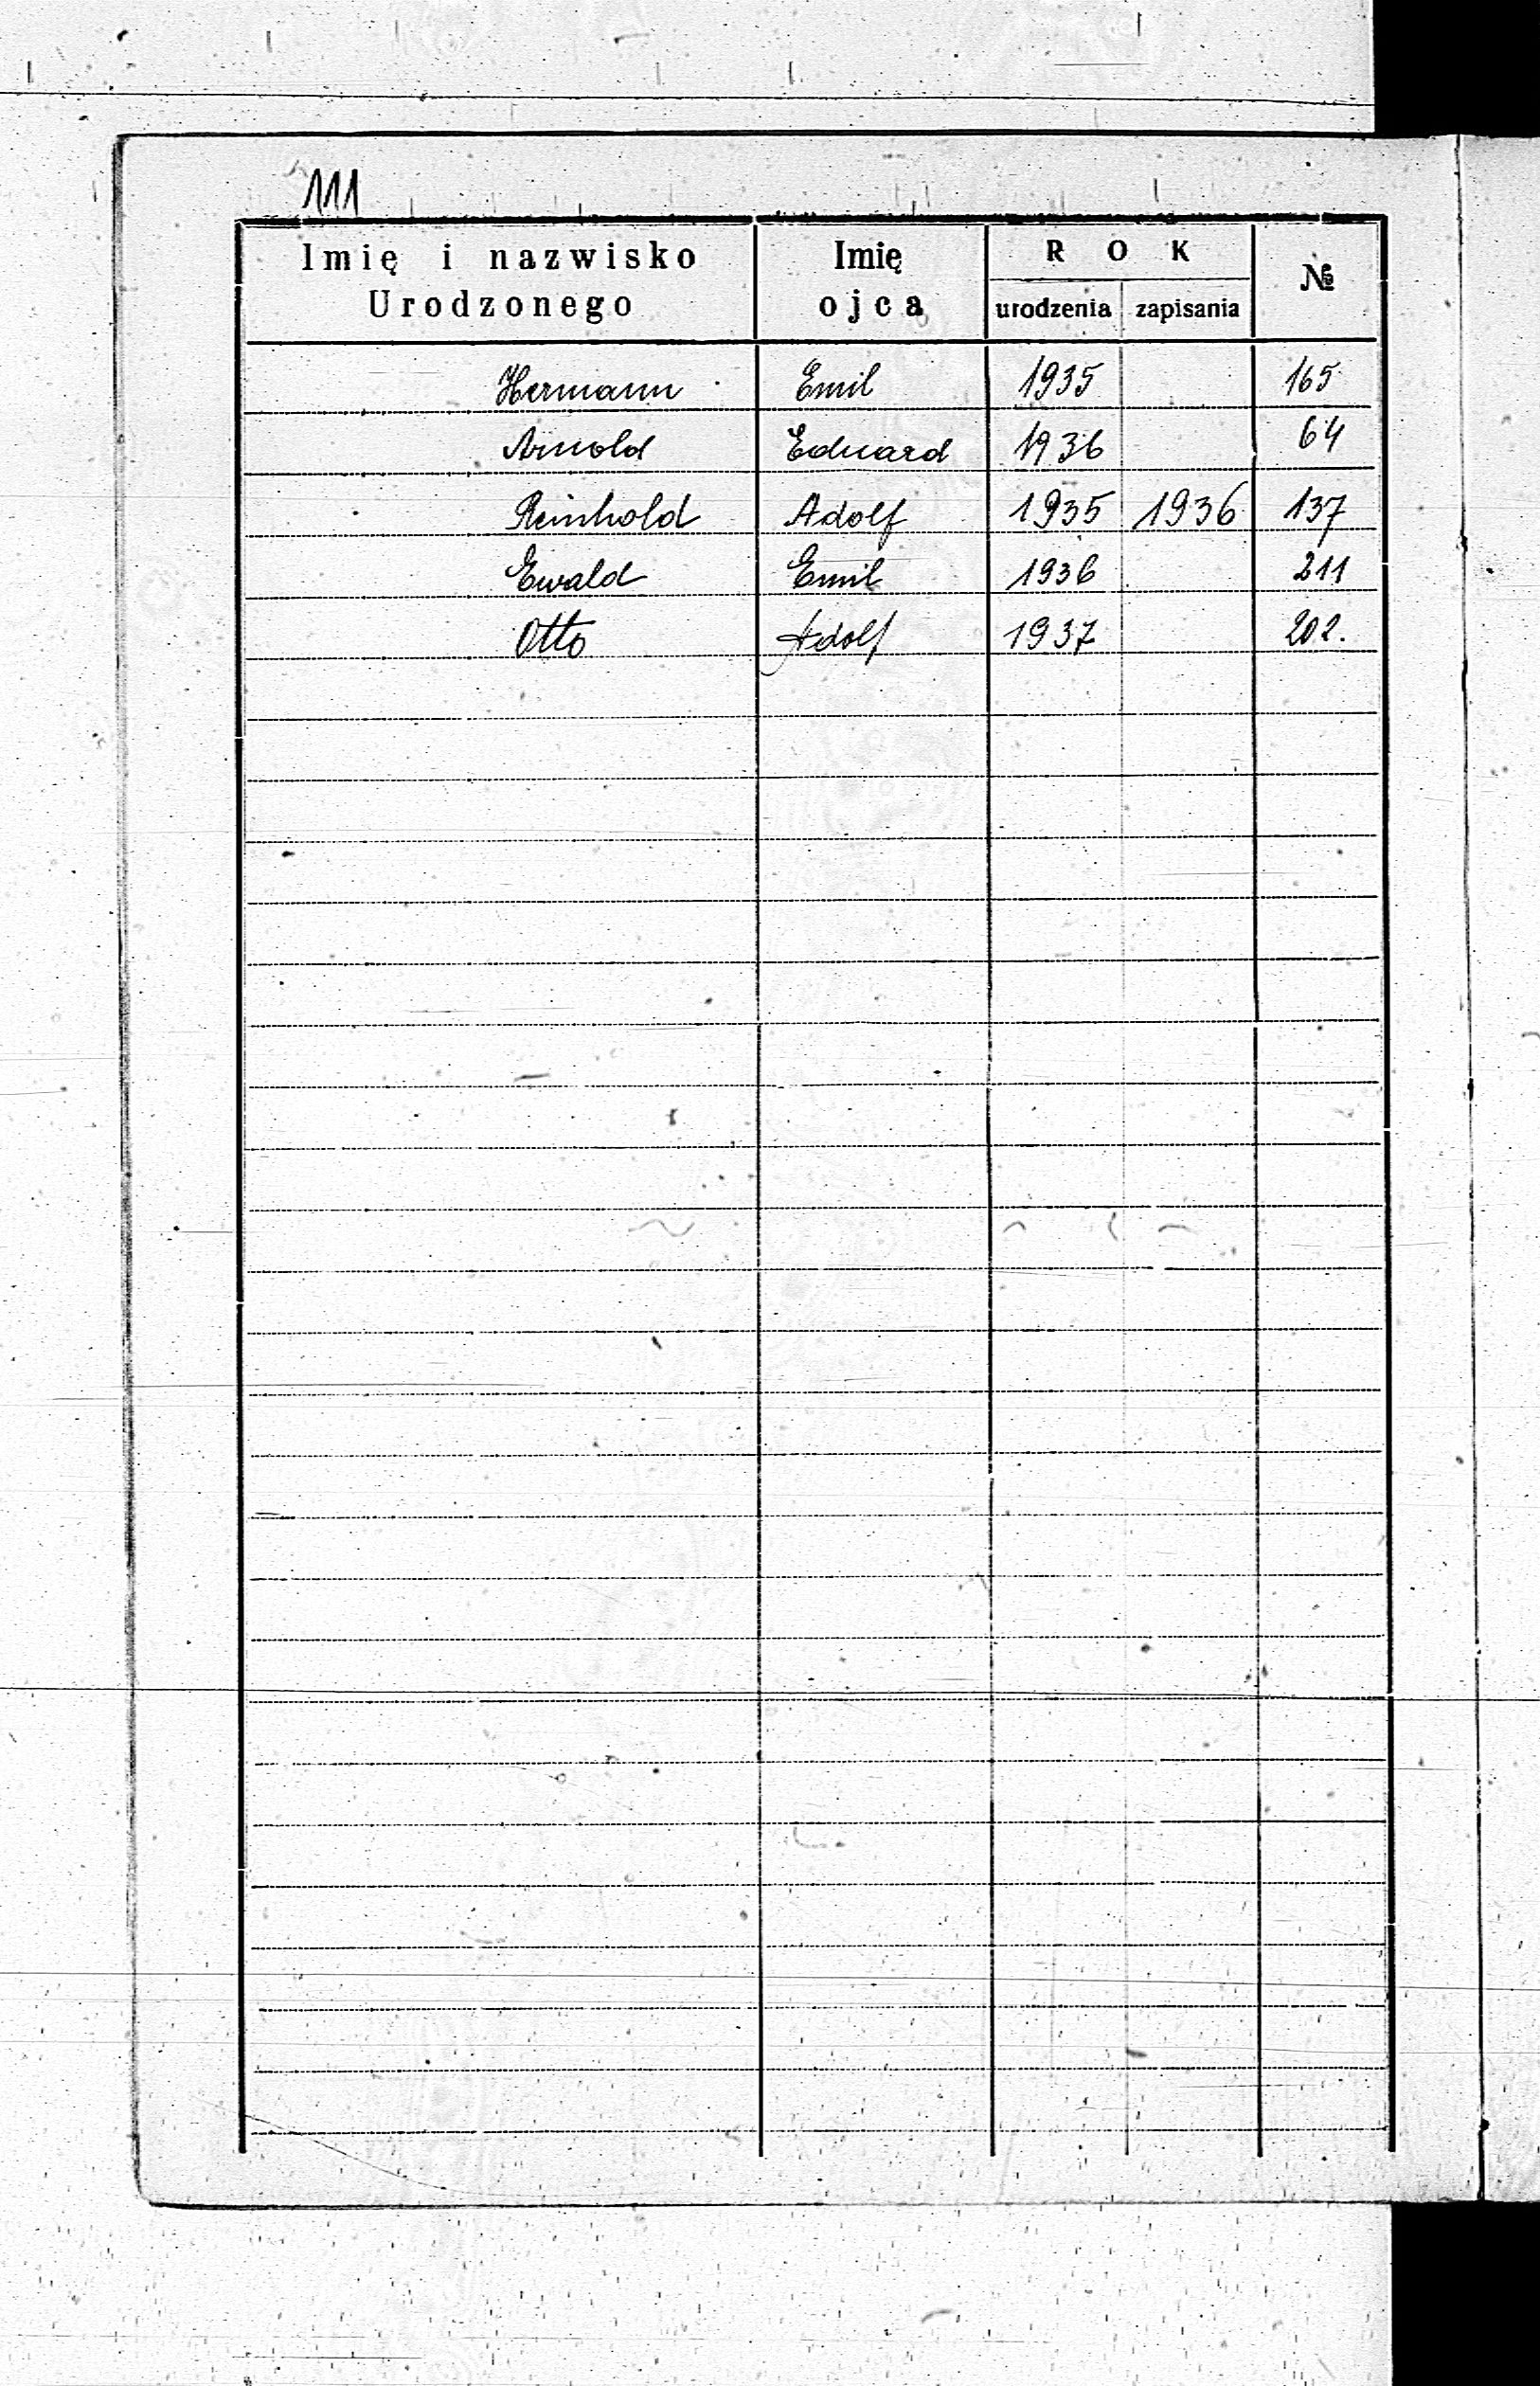 111
Imię i nazwisko Urodzonego Imię ojca ROK urodzenia zapisania №
Hermann Emil 1935 165
Arnold Eduard 1936 64
Reinhold Adolf 1935 1936 137
Ewald Emil 1936 211
Otto Adolf 1937 202.